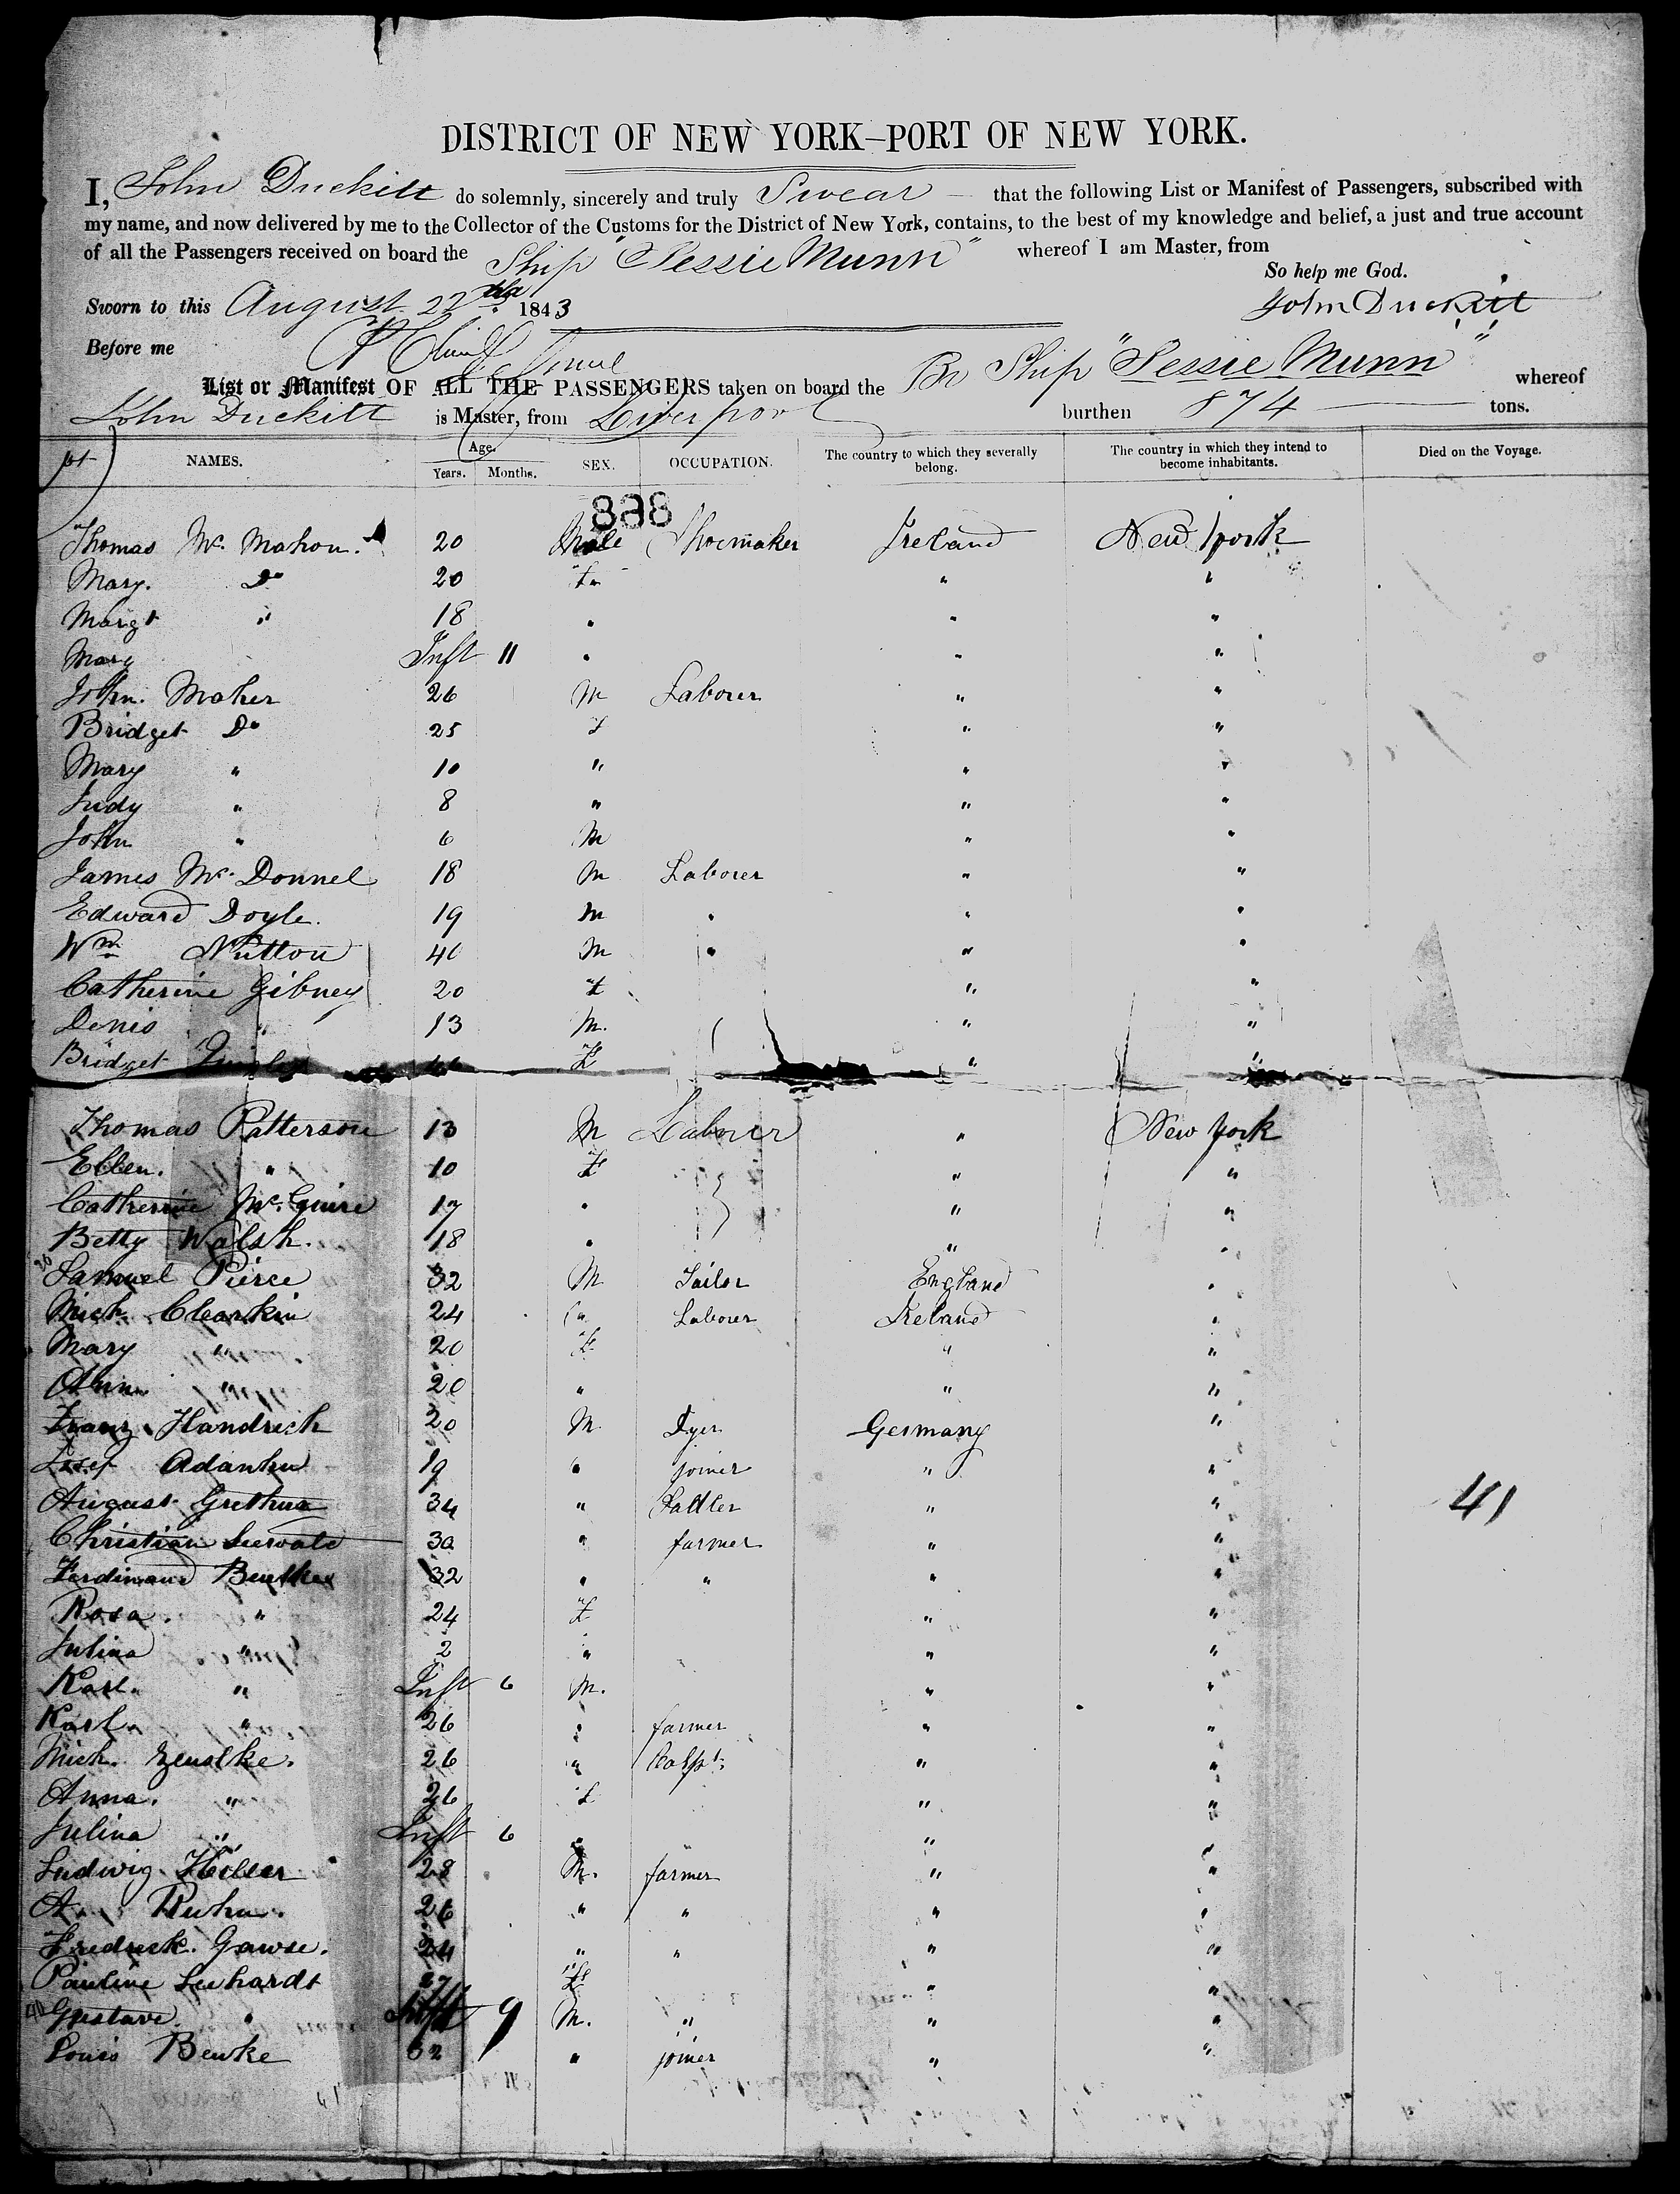 DISTRICT OF NEW YORK–PORT OF NEW YORK.
I, John Duckitt do solemnly, sincerely and truly Swear — that the following List or Manifest of Passengers, subscribed with
my name, and now delivered by me to the Collector of the Customs for the District of New York, contains, to the best of my knowledge and belief, a just and true account
of all the Passengers received on board the Ship "Jessie Munn" whereof I am Master, from
So help me God.
Sworn to this August 22nd 1843 John Duckitt
Before me
List or Manifest OF ALL THE PASSENGERS taken on board the Br Ship "Jessie Munn" whereof
John Duckitt is Master, from Liverpool burthen 874 tons.
NAMES. Age. Years. Months. SEX. OCCUPATION. The country to which they severally belong. The country in which they intend to become inhabitants. Died on the Voyage.
898
Thomas Mc. Mahon. 20 Male Shoemaker Ireland New York
Mary. Do 20 F " "
Margt " 18 " " "
Mary Inft 11 " " "
John. Maher 26 M Laborer " "
Bridget Do 25 F " "
Mary " 10 " " "
Judy " 8 " " "
John " 6 M " "
James Mc. Donnel 18 M Laborer " "
Edward Doyle. 19 M " " "
Wm Nutton 40 M " " "
Catherine Gibney 20 F " "
Denis " 13 M. " "
Bridget F " "
Thomas Patterson 13 M Laborer " New York
Ellen. " 10 F " "
Catherine Mc. Guire 17 " " "
Betty Walsh. 18 " " "
20 Samuel Pierce 32 M Tailor England "
Mich. Clearkin 24 " Laborer Ireland "
Mary " 20 F " "
Ann. " 20 " " "
Franz Handrich 20 M Dyer Germany "
Josef 19 " joiner " "
August 34 " Sadler " " 41
Christian 30 " farmer " "
Ferdinand 32 " " " "
Rosa. " 24 F " "
Julina " 2 " " "
Karl. " Inft 6 M. " "
Karl. " 26 " farmer " "
Mich. 26 " Carpt. " "
Anna. " 26 F " "
Julina " Inft 6 " " "
Ludwig Heller 28 M. farmer " "
A. Ruhn. 26 " " " "
Fredrick. Gawse. 24 " " " "
Pauline Leehardt 27 F " "
40 Gustave. " Inft 9 M. " " "
Louis Bewke 32 " joiner " "